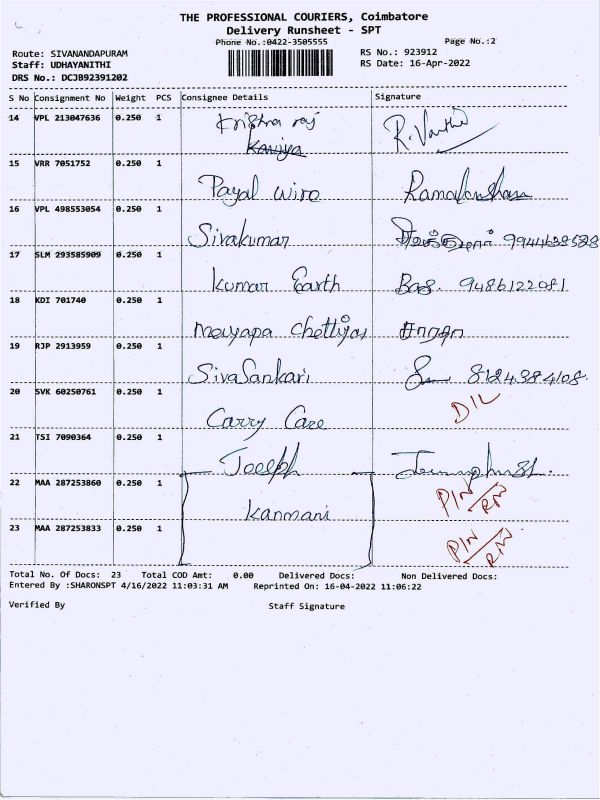 THE PROFESSIONAL COURIERS, Coimbatore
Delivery Runsheet - SPT
Phone No.:0422-3505555
Page No.:2
Route: SIVANANDAPURAM
RS No.: 923912
Staff: UDHAYANITHI
RS Date: 16-Apr-2022
DRS No.: DCJB92391202
S No Consignment No Weight PCS Consignee Details Signature
14 VPL 213047636 0.250 1 Krishna raj R. Vanthi
Kaniya
15 VRR 7051752 0.250 1 Payal wire
16 VPL 498553054 0.250 1 Sivakumar 9944638588
17 SLM 293585909 0.250 1 Kumar Earth 9486122081
18 KDI 701740 0.250 1 Meiyapa Chettiyar
19 RJP 2913959 0.250 1 SivaSankari 8124384108
20 SVK 60250761 0.250 1 Carry Care D/L
21 TSI 7090364 0.250 1 Joseph
22 MAA 287253860 0.250 1 Kanmani PIN/RN
23 MAA 287253833 0.250 1 PIN/RN
Total No. Of Docs: 23 Total COD Amt: 0.00 Delivered Docs: Non Delivered Docs:
Entered By :SHARONSPT 4/16/2022 11:03:31 AM Reprinted On: 16-04-2022 11:06:22
Verified By Staff Signature